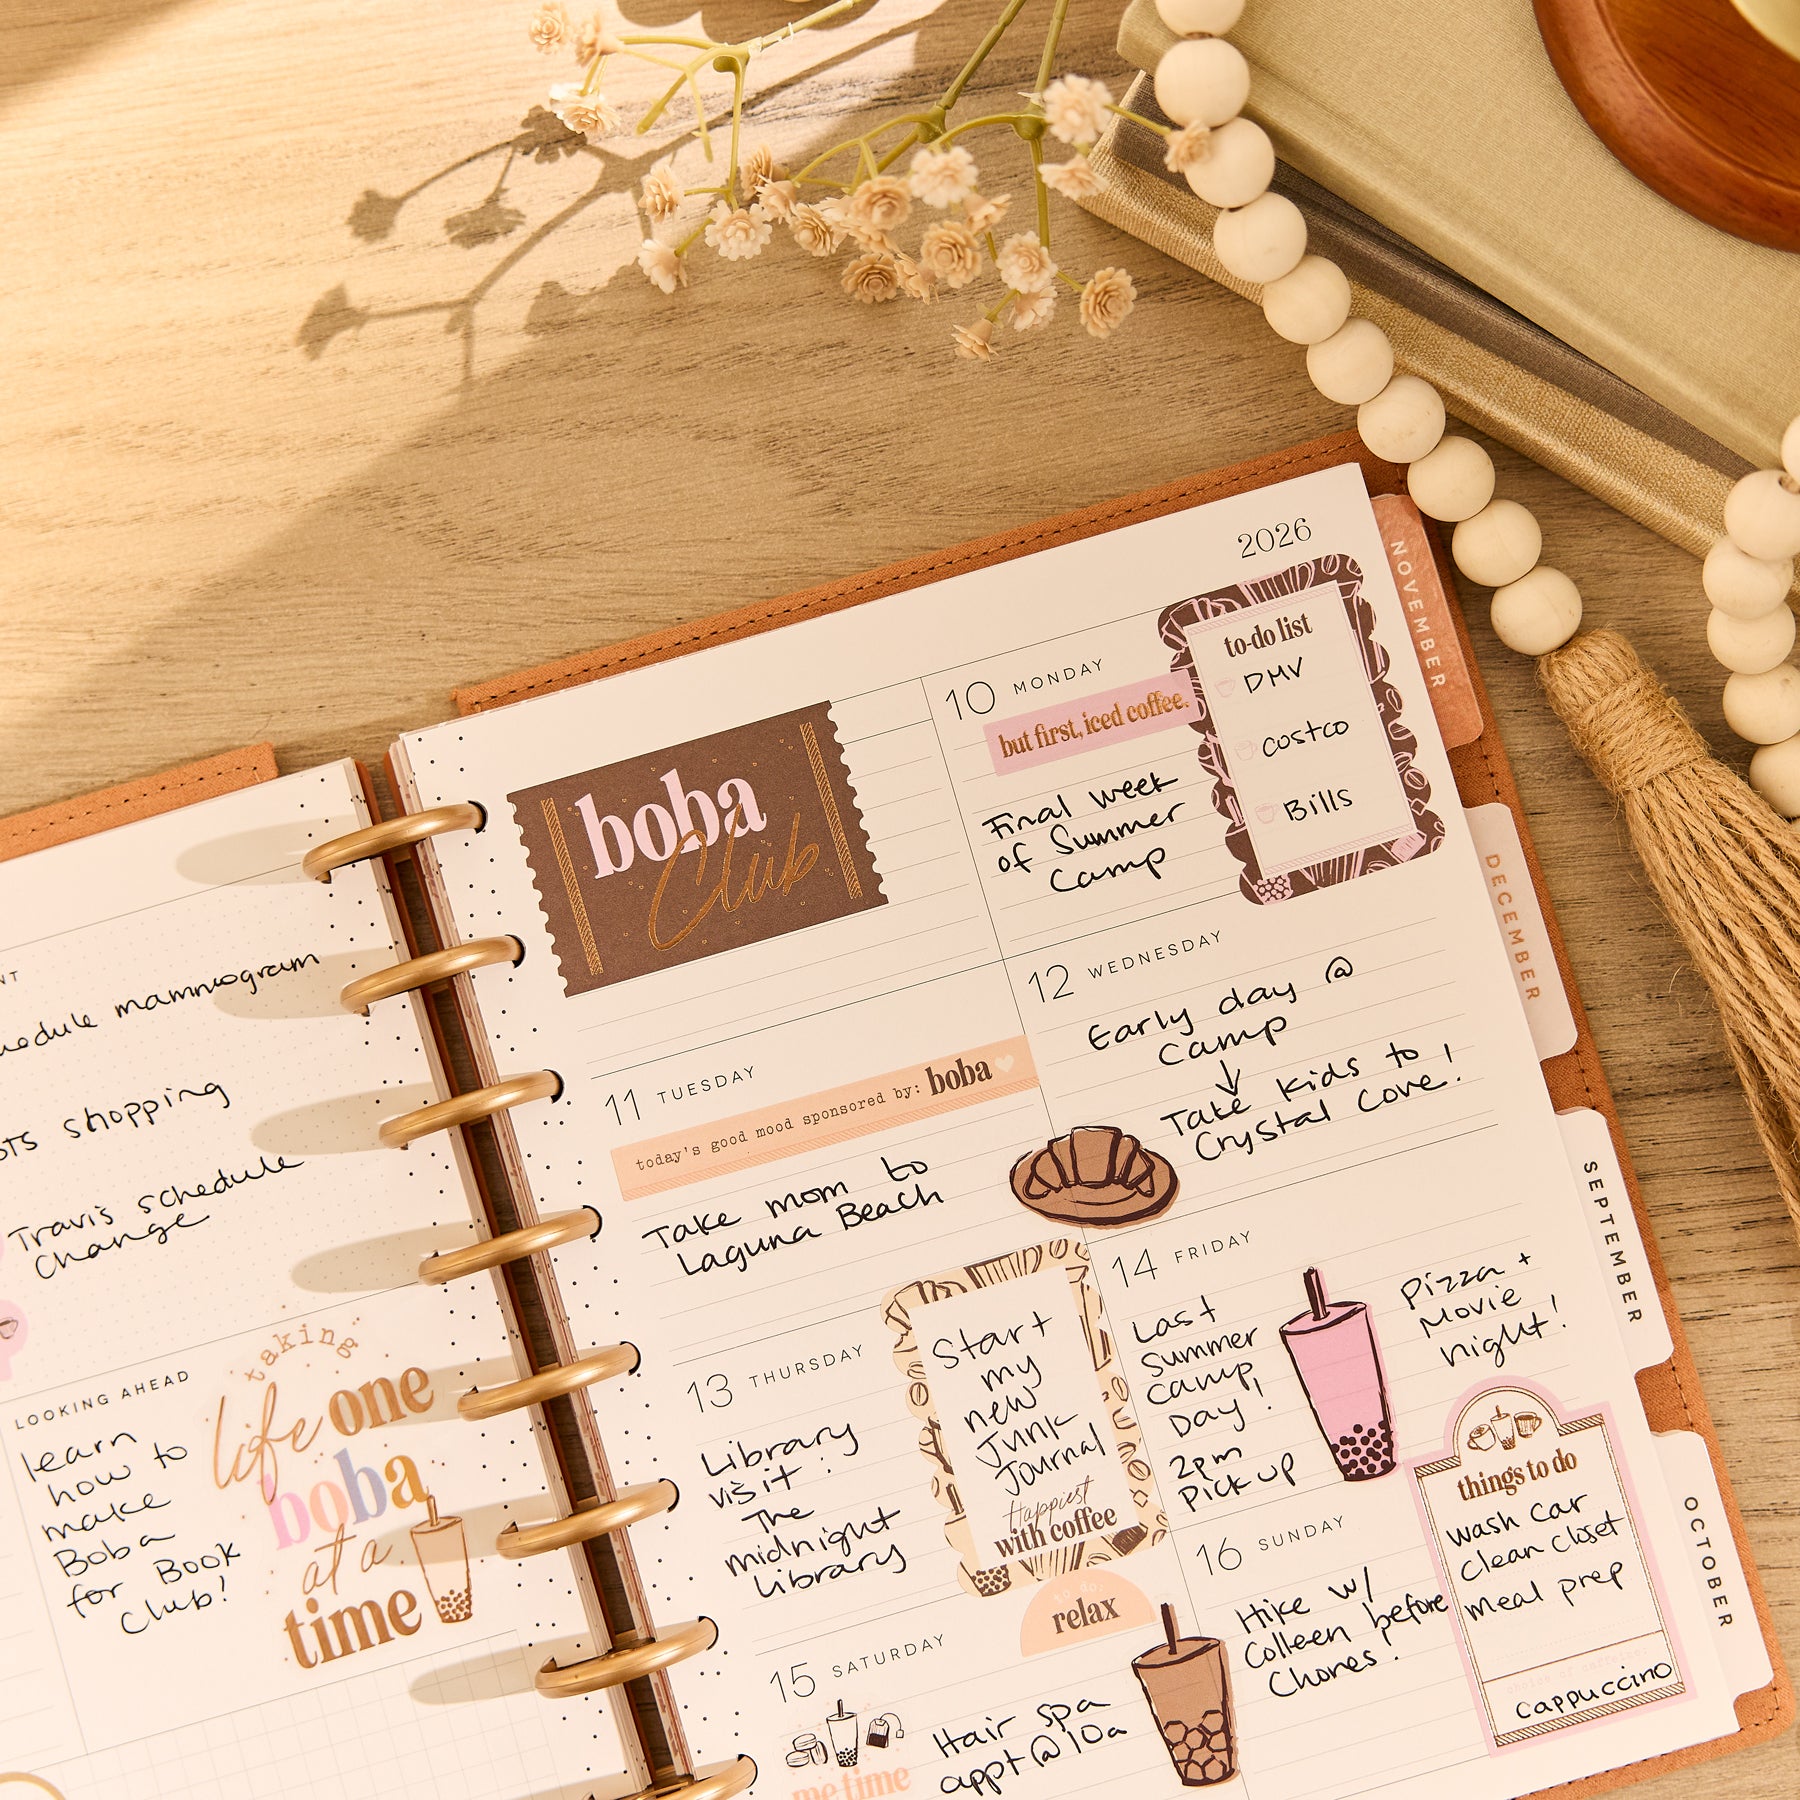 NT
mammogram
shopping
Travis schedule
change
LOOKING AHEAD
learn
how to
make
Boba
for Book
Club!
taking
life one
boba
at a
time
boba
Club
2026
10 MONDAY
but first, iced coffee.
Final week
of Summer
Camp
to-do list
DMV
Costco
Bills
11 TUESDAY
today's good mood sponsored by: boba
Take mom to
Laguna Beach
12 WEDNESDAY
Early day @
Camp
↓
Take kids to
Crystal Cove!
13 THURSDAY
Library
visit:
The
midnight
library
Start
my
new
Junk
Journal
Happiest
with coffee
14 FRIDAY
Last
Summer
Camp
Day!
2pm
Pick up
Pizza +
Movie
night!
15 SATURDAY
me time
Hair spa
appt @ 10a
to do:
relax
16 SUNDAY
Hike w/
Colleen before
Chores!
things to do
wash car
clean closet
meal prep
cappuccino
NOVEMBER
DECEMBER
SEPTEMBER
OCTOBER